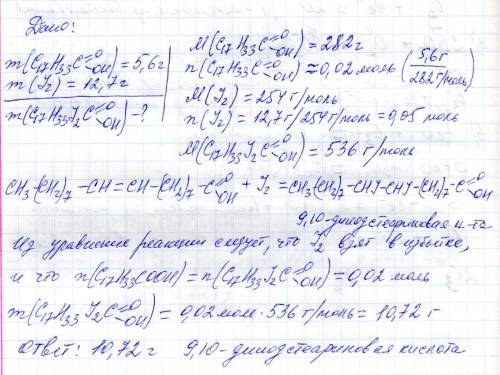 Дано:
m(C₁₇H₃₃C=O-OH) = 5,6г
m(J₂) = 12,7г
m(C₁₇H₃₃J₂C=O-OH) - ?
M(C₁₇H₃₃C=O-OH) = 282г
n(C₁₇H₃₃C=O-OH) ≈ 0,02 моль (5,6г/282г/моль)
M(J₂) = 254 г/моль
n(J₂) = 12,7г/254г/моль = 0,05 моль
M(C₁₇H₃₃J₂C=O-OH) = 536 г/моль
CH₃-(CH₂)₇-CH=CH-(CH₂)₇-C=O-OH + J₂ = CH₃(CH₂)₇-CHJ-CHJ-(CH₂)₇-C=O-OH
9,10-дииодстеариновая к-та
Из уравнения реакции следует, что J₂ взят в избытке,
и что n(C₁₇H₃₃COOH) = n(C₁₇H₃₃J₂C=O-OH) = 0,02 моль
m(C₁₇H₃₃J₂C=O-OH) = 0,02 моль · 536 г/моль = 10,72 г
Ответ: 10,72 г 9,10-дииодстеариновая кислота